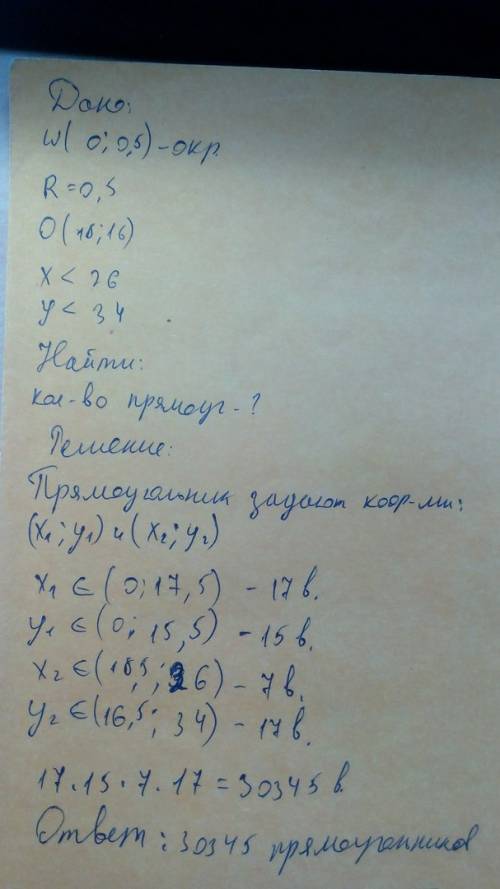 Дано:
W( 0; 0,5) - окр.
R = 0,5
O (18; 16)
x < 26
y < 34
Найти:
кол-во прямоуг - ?
Решение:
Прямоугольник задают коор-ми:
(x₁; y₁) и (x₂; y₂)
x₁ ∈ (0; 17,5) - 17 в.
y₁ ∈ (0; 15,5) - 15 в.
x₂ ∈ (18,5; 26) - 7 в.
y₂ ∈ (16,5; 34) - 17 в.
17 · 15 · 7 · 17 = 30345 в.
Ответ: 30345 прямоугольников